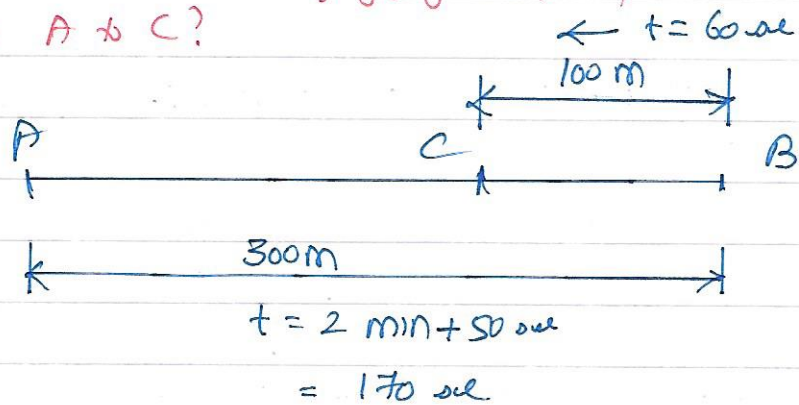 A to C?
← t = 60 sec
100 m
A C B
300m
t = 2 min + 50 sec
= 170 sec